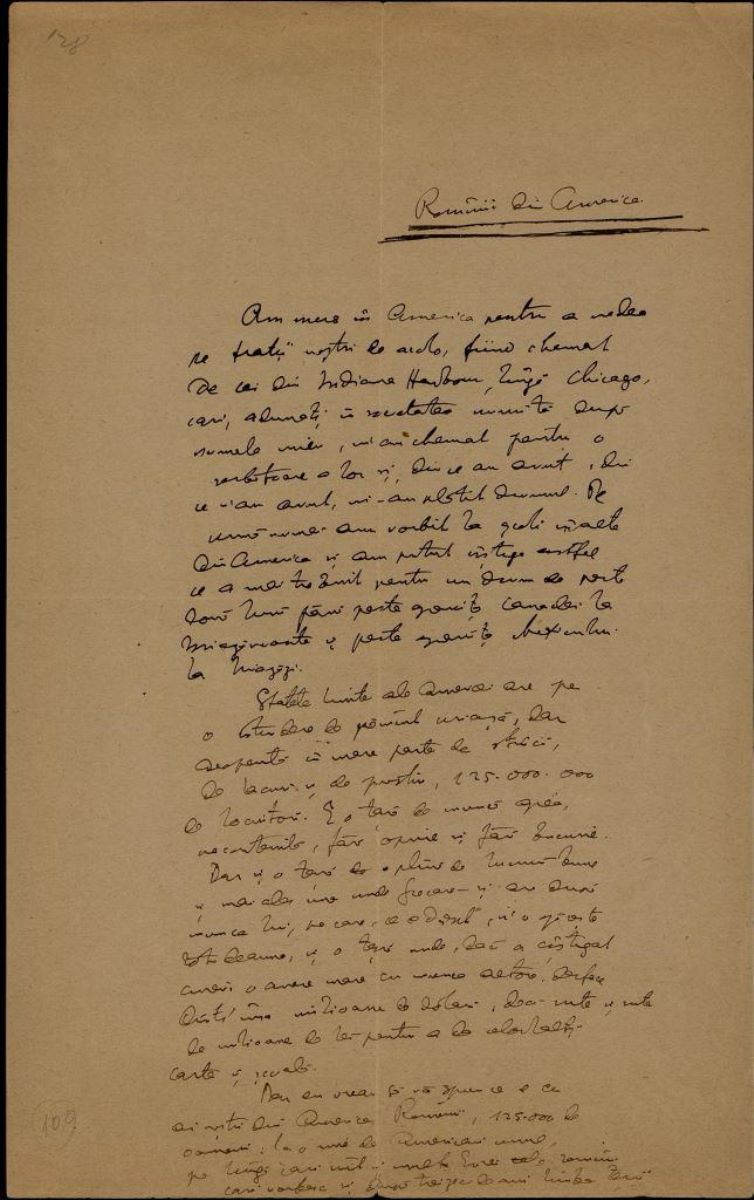 128
Românii din America
Am mers în America pentru a vedea
pe frații noștri de acolo, fiind chemat
de cei din Indiana Harbour, lîngă Chicago,
cari, adunați în societatea numită după
numele mieu, m'au chemat pentru o
serbătoare a lor și, din ce au avut, din
ce n'au avut, mi-au plătit drumul. Pe
urmă numai am vorbit la școli înalte
din America și am putut cîștiga astfel
ce a mai trebuit pentru un drum de peste
două luni pănă peste granița Canadei la
și peste granița Mexicului
la
Statele Unite ale Americei are pe
o întindere de pămînt uriașă, dar
acoperită în mare parte de stînci,
de lacuri și de pustiu, 125.000.000
de locuitori. E o țară de muncă grea,
necontenită, fără oprire și fără bucurie.
Dar și o țară de plină de lume bună
și mai ales una unde fiecare-și are după
munca lui, pe care, ce e drept, și-o găsește
totdeauna, și o țară unde, dacă a cîștigat
cineva o avere mare cu munca
milioane de dolari, deci sute și sute
de milioane de lei pentru a da celorlalți
carte și școală.
Dar eu vreau să vă spun ce e cu
ai noștri din America, Românii, 125.000 de
oameni, la o sută de Americani unul,
pe lîngă cari sînt și mulți Evrei români
cari vorbesc și după treizeci de ani limba țării
109